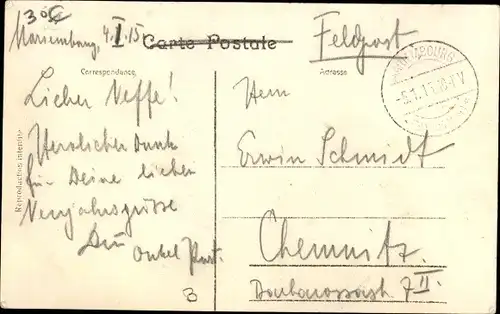 Marienbourg, 4.I.15
Carte Postale
Feldpost
Correspondance
Adresse
MARIEMBOURG
-5.1.15.
Reproduction interdite
Lieber Neffe!
Herzlicher Dank
für Deine lieben
Neujahrsgrüsse
Dein Onkel
Herrn
Erwin Schmidt
Chemnitz.
Barbarossastr 7 II.
B